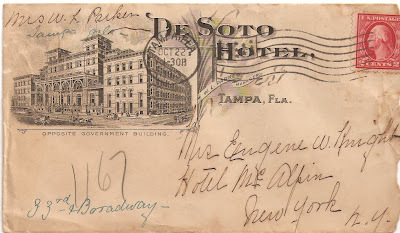 Mrs W. L. Parker
Tampa Fla.
DE SOTO
HOTEL,
TAMPA, FLA.
OCT 22
OPPOSITE GOVERNMENT BUILDING.
U.S. POSTAGE
2 CENTS 2
Mrs Eugene W. Knight
Hotel McAlpin
New York
N.Y.
1167
33rd & Boradway